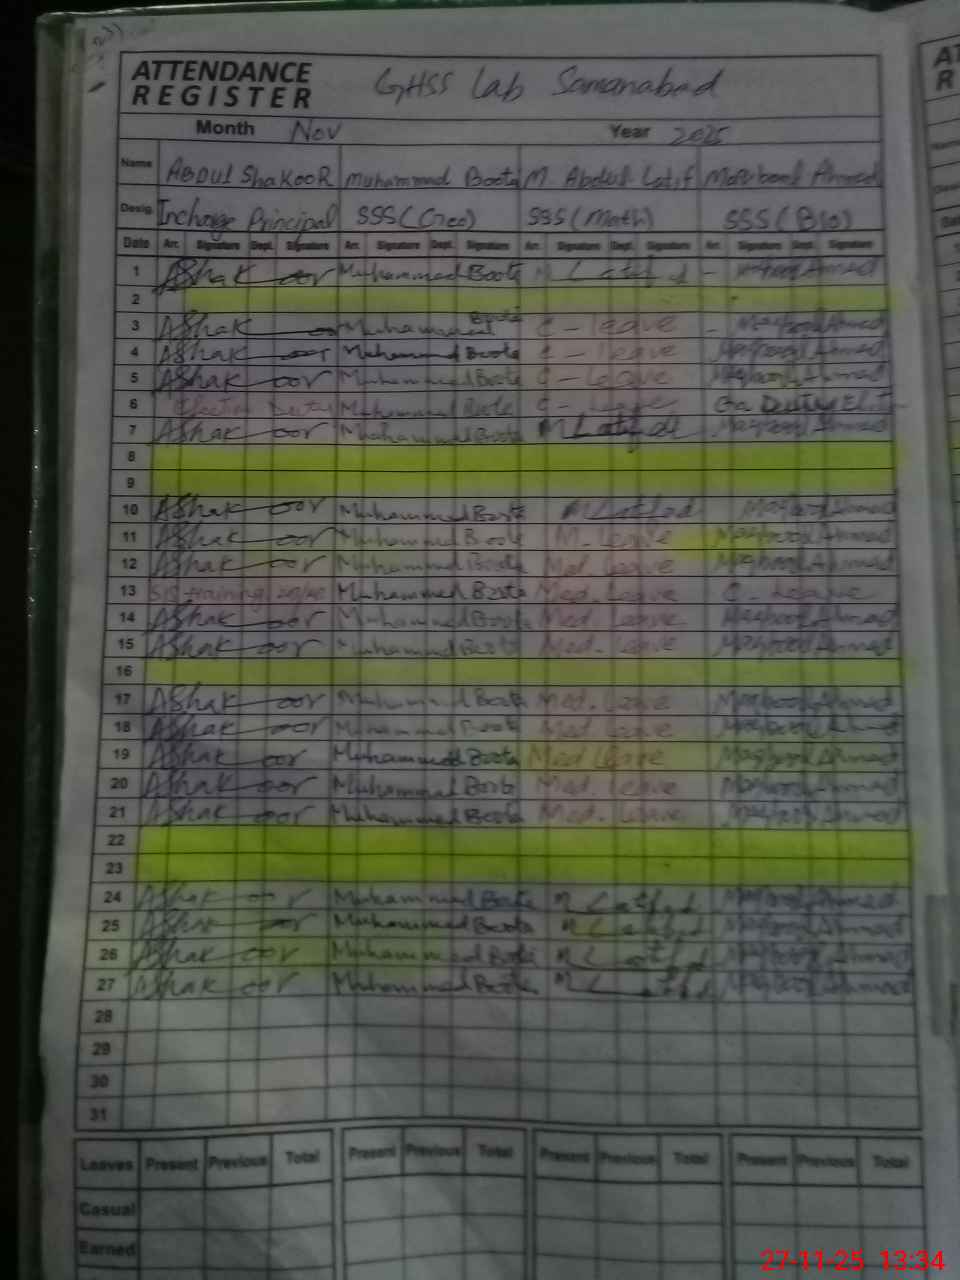 ATTENDANCE REGISTER GHSS Lab Samanabad
Month Nov Year 2025
Name Abdul Shakoor Muhammad Boota M. Abdul Latif Maqbool Ahmed
Desig. Incharge Principal SSS (Geo) SSS (Math) SSS (Bio)
Date Arr. Signature Dept. Signature Arr. Signature Dept. Signature Arr. Signature Dept. Signature Arr. Signature Dept. Signature
1 AShakoor Muhammad Boota M Latif Maqbool Ahmed
2
3 AShakoor Muhammad Boota C-leave Maqbool Ahmed
4 AShakoor Muhammad Boota C-leave Maqbool Ahmed
5 AShakoor Muhammad Boota C-leave Maqbool Ahmed
6 Election Duty Muhammad Boota C-leave On Duty
7 AShakoor Muhammad Boota M Latif Maqbool Ahmed
8
9
10 AShakoor Muhammad Boota M Latif Maqbool Ahmed
11 AShakoor Muhammad Boota M. Leave Maqbool Ahmed
12 AShakoor Muhammad Boota Med. Leave Maqbool Ahmed
13 training Muhammad Boota Med. Leave C-Leave
14 AShakoor Muhammad Boota Med. Leave Maqbool Ahmed
15 AShakoor Muhammad Boota Med. Leave Maqbool Ahmed
16
17 AShakoor Muhammad Boota Med. Leave Maqbool Ahmed
18 AShakoor Muhammad Boota Med. Leave Maqbool Ahmed
19 AShakoor Muhammad Boota Med Leave Maqbool Ahmed
20 AShakoor Muhammad Boota Med. Leave Maqbool Ahmed
21 AShakoor Muhammad Boota Med. Leave Maqbool Ahmed
22
23
24 AShakoor Muhammad Boota M Latif Maqbool Ahmed
25 AShakoor Muhammad Boota M Latif Maqbool Ahmed
26 AShakoor Muhammad Boota M Latif Maqbool Ahmed
27 AShakoor Muhammad Boota M Latif Maqbool Ahmed
28
29
30
31
Leaves Present Previous Total Present Previous Total Present Previous Total Present Previous Total
Casual
Earned
27-11-25 13:34